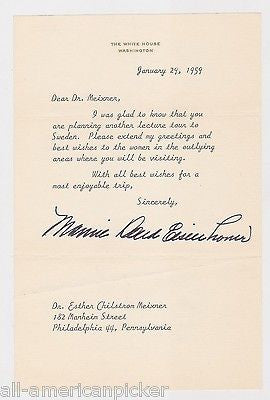 THE WHITE HOUSE
WASHINGTON
January 29, 1959
Dear Dr. Meixner,
I was glad to know that you
are planning another lecture tour to
Sweden. Please extend my greetings and
best wishes to the women in the outlying
areas where you will be visiting.
With all best wishes for a
most enjoyable trip,
Sincerely,
Mamie Doud Eisenhower
Dr. Esther Chilstrom Meixner
182 Manheim Street
Philadelphia 44, Pennsylvania
all-americanpicker